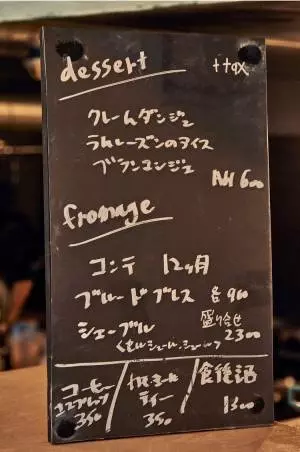 dessert
++tax
クレームダンジュ
ラムレーズンのアイス
ブランマンジェ
All 600
fromage
コンテ 12ヶ月
ブルードブレス 各900
シェーブル 盛り合せ
2300
コーヒー
エスプレッソ
350
カモミール
ティー
350
食後酒
1300